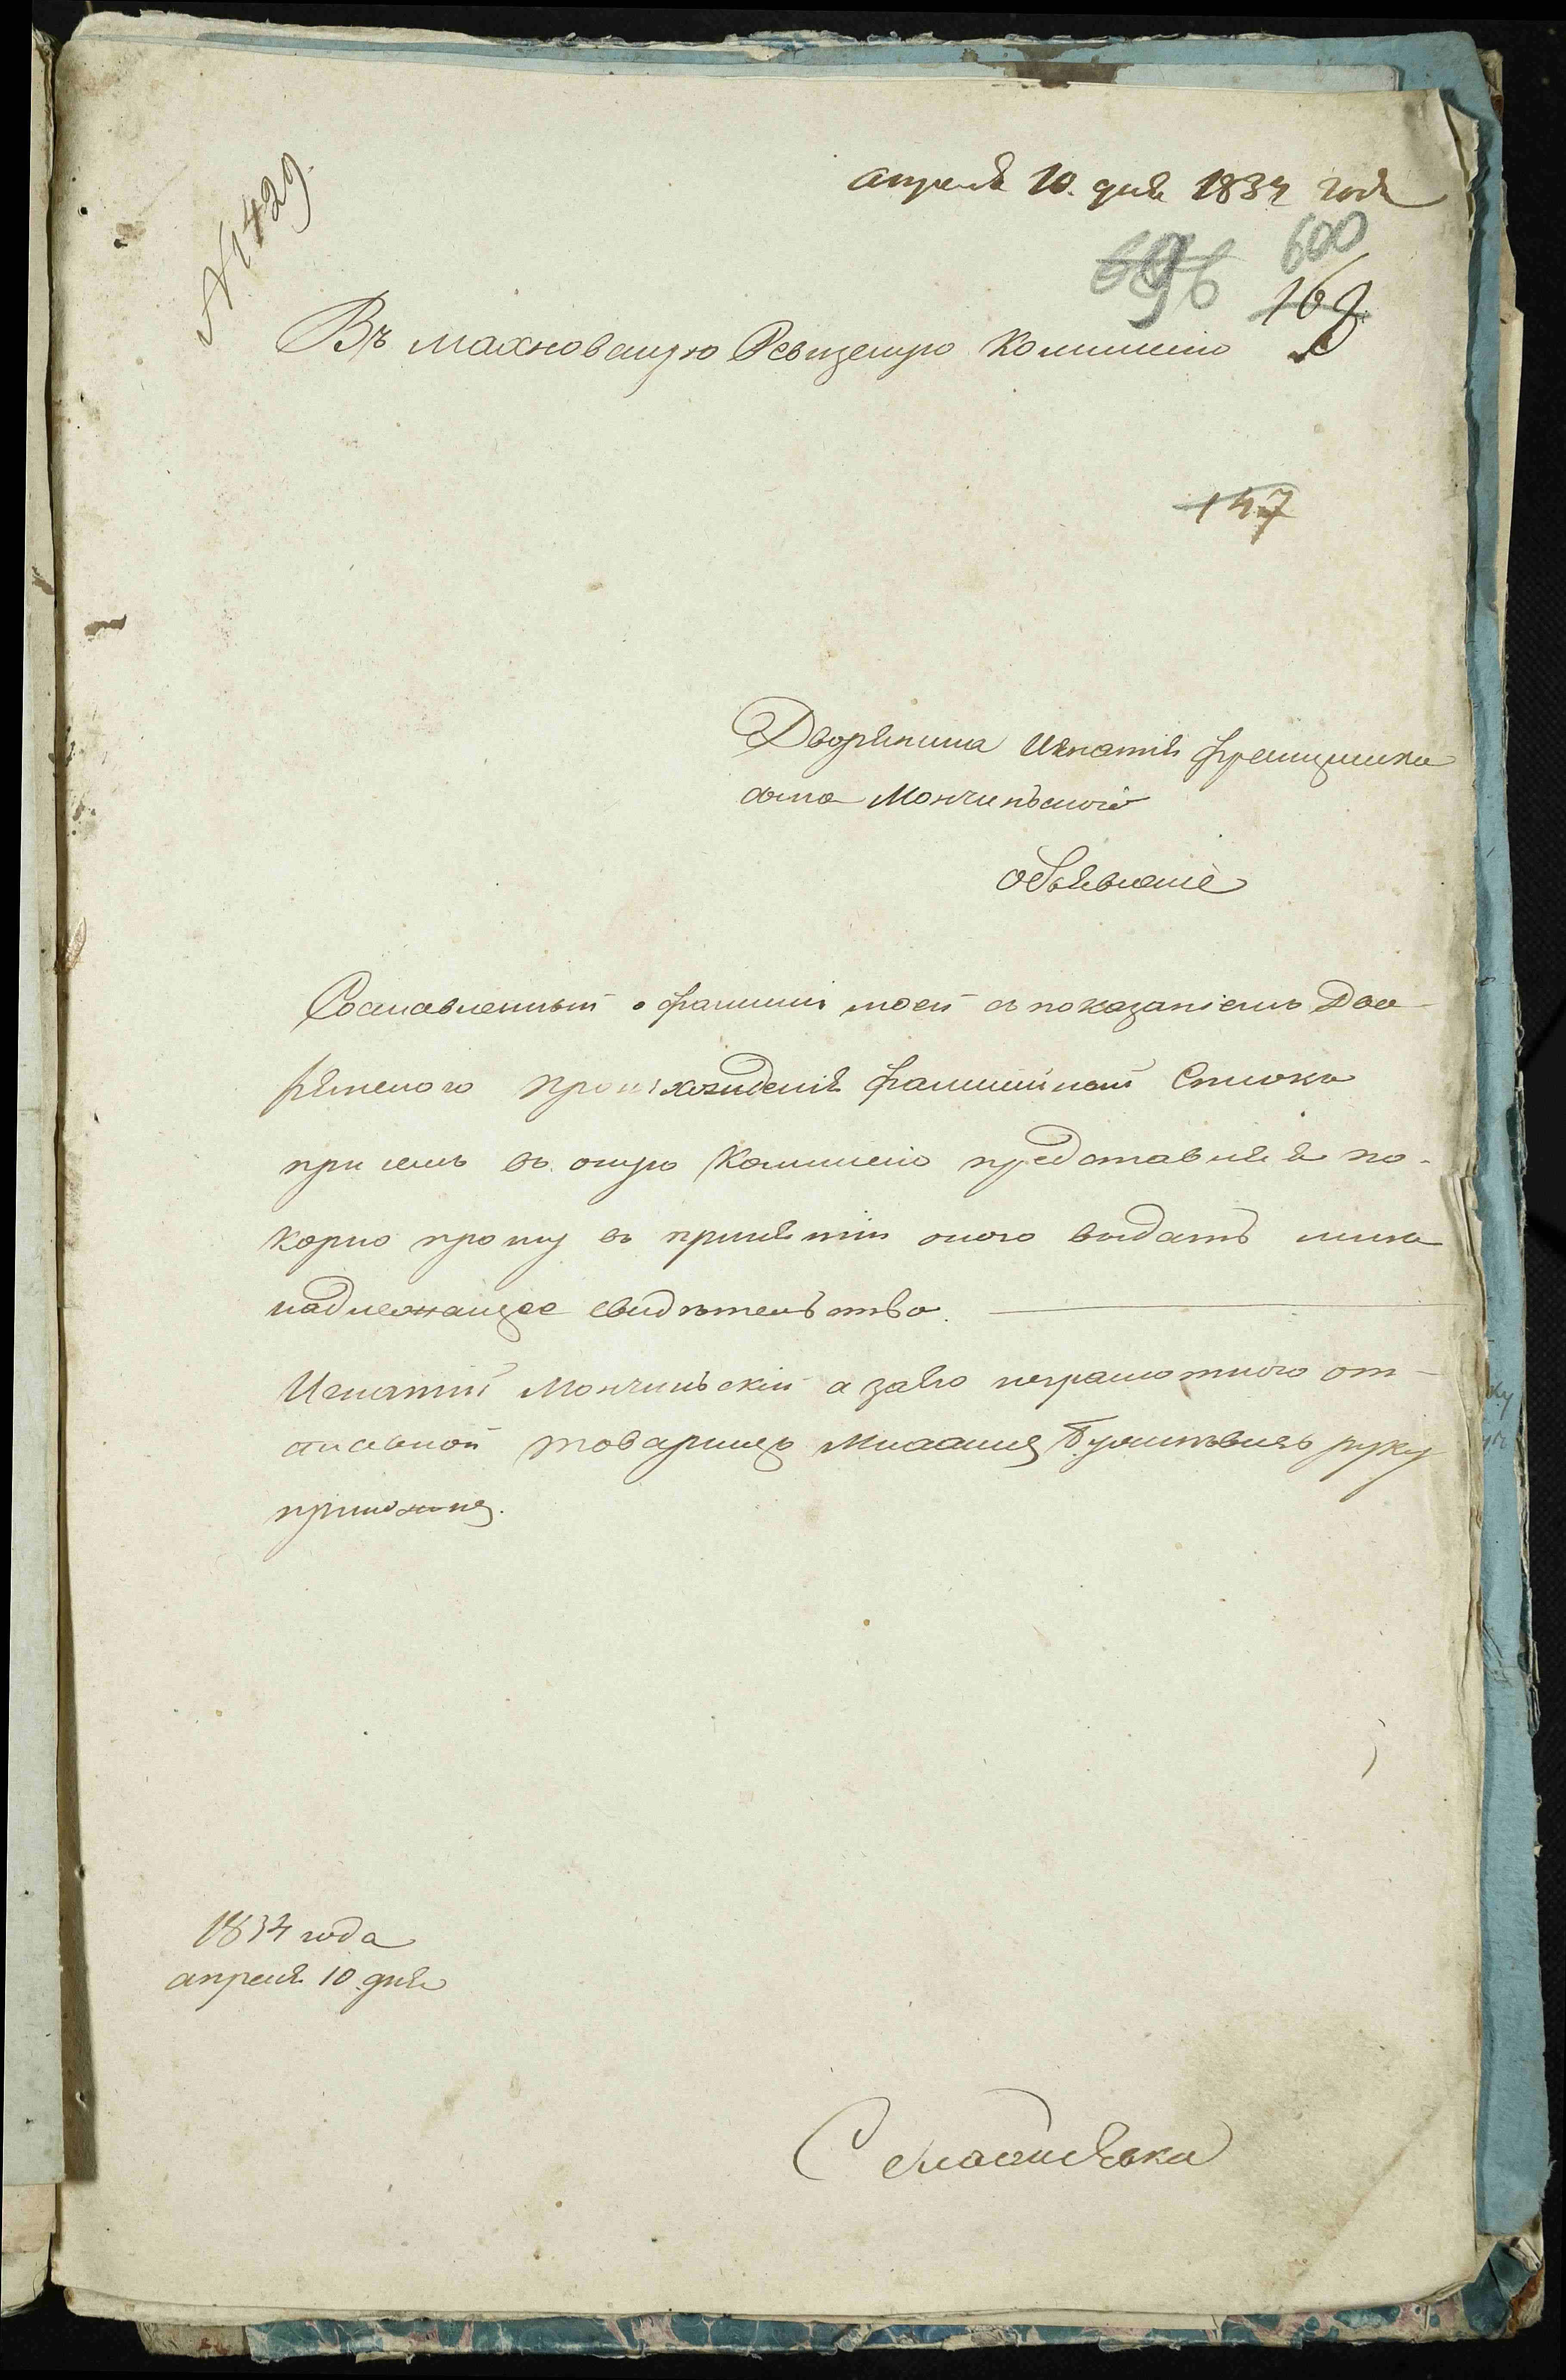 № 1429.
апреля 10. дня 1834 года
696 600
169.
Въ махновскую Ревизскую Коммисію
147
Дворянина Игнатія Францишка
сына Мончинъского
объявленіе
Составленный о фамиліи моей съ показаніемъ Дво-
рянского происхожденія фамилійной Списокъ
при семъ въ оную Коммисію представляя по-
корно прошу въ принятіи оного выдать мнѣ
надлежащее свидѣтельство.
Игнатій Мончинъскій а заего неграмотного от-
ставной товарищъ руку
приложилъ.
1834 года
апреля 10 дня